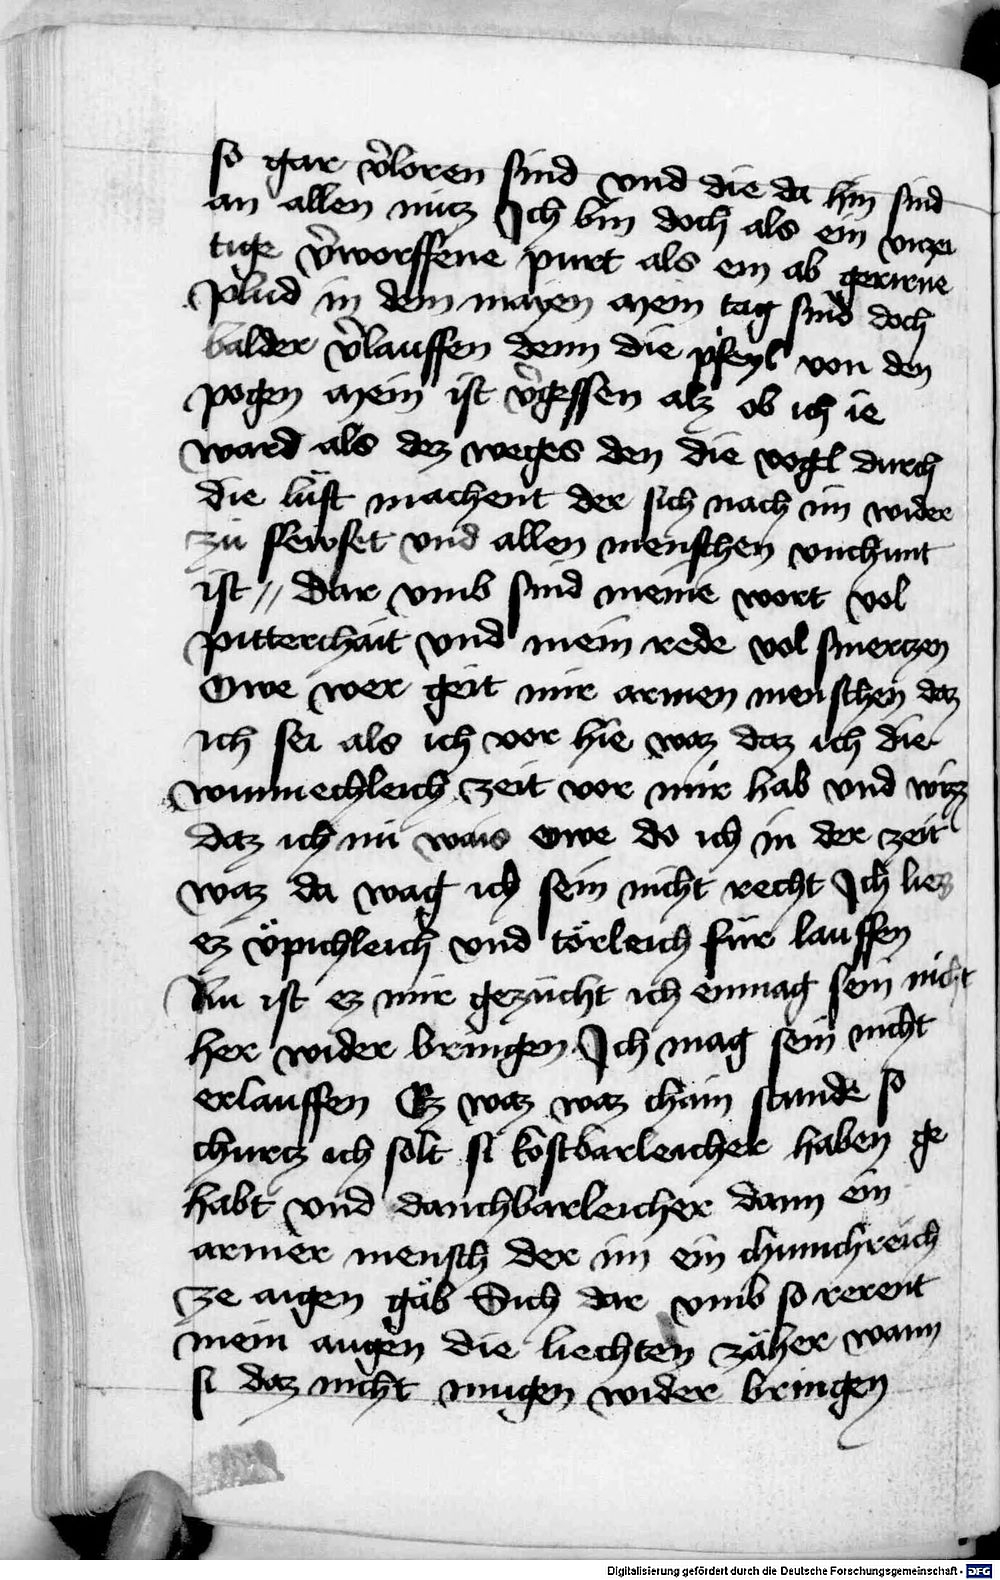 so gar v̉loren sind vnd die da hin sind
an allen nucz Ich bin doch als ein vnzei
tige v̉worffene purt als ein ab gerirne
plud in dem mayen mein tag sind doch
balder v̉lauffen denn die pfeyl von den
pogen mein ist v̉gessen alz ob ich ie
ward als dez weges den die vogel durch
die lüft machent der sich nach im wider
zu und allen menschen vnchunt
ist // Dar vmb sind meine wort vol
pitterchait vnd mein rede vol smerczen
Owe wer geit mir armen menschen daz
ich sei als ich vor hie waz daz ich die
wunnechleich zeit vor mir hab vnd wizz
daz ich nu wais Owe do ich in der zeit
waz da wag ich sein nicht recht Ich liez
ez vͤpichleich vnd törleich für lauffen
Nu ist ez mir gezucht ich enmag sein nicht
her wider bringen Ich mag sein nicht
erlauffen Ez waz waz chain stunde so
churcz ich solt si kostbarleicher haben ge
habt vnd danchbarleicher dann ein
armer mensch der im ein chunichreich
ze aigen gäb Sich dar vmb so rerent
mein augen die liechten zäher wann
si daz nicht mugen wider bringen
Digitalisierung gefördert durch die Deutsche Forschungsgemeinschaft - DFG